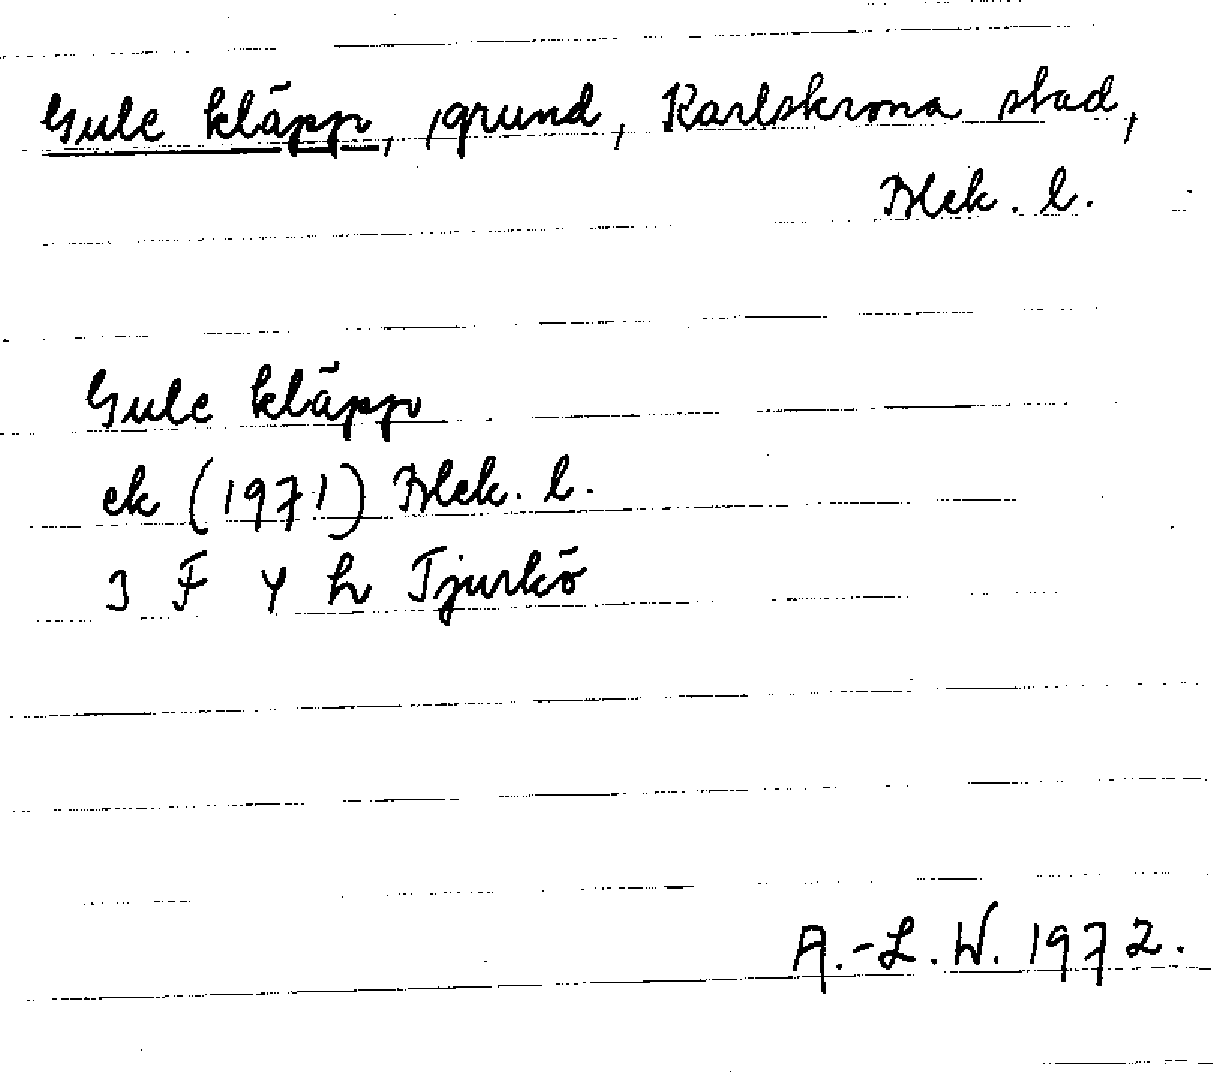 Gule kläpp, grund, Karlskrona stad,
Blek. l.
Gule kläpp
ek (1971) Blek. l.
3 F Y h Tjurkö
A.-L. W. 1972.